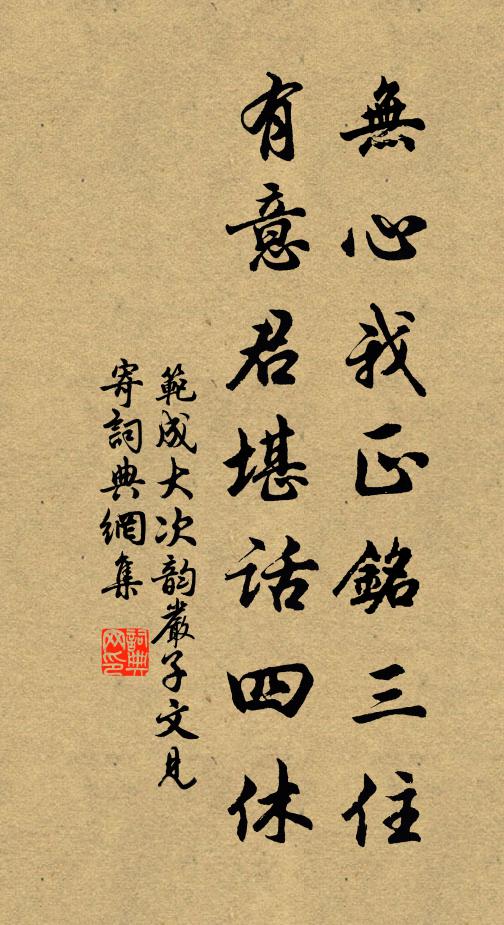 無心我正銘三住
有意君堪話四休
範成大次韵嚴子文見
寄詞典網集
詞典
网印